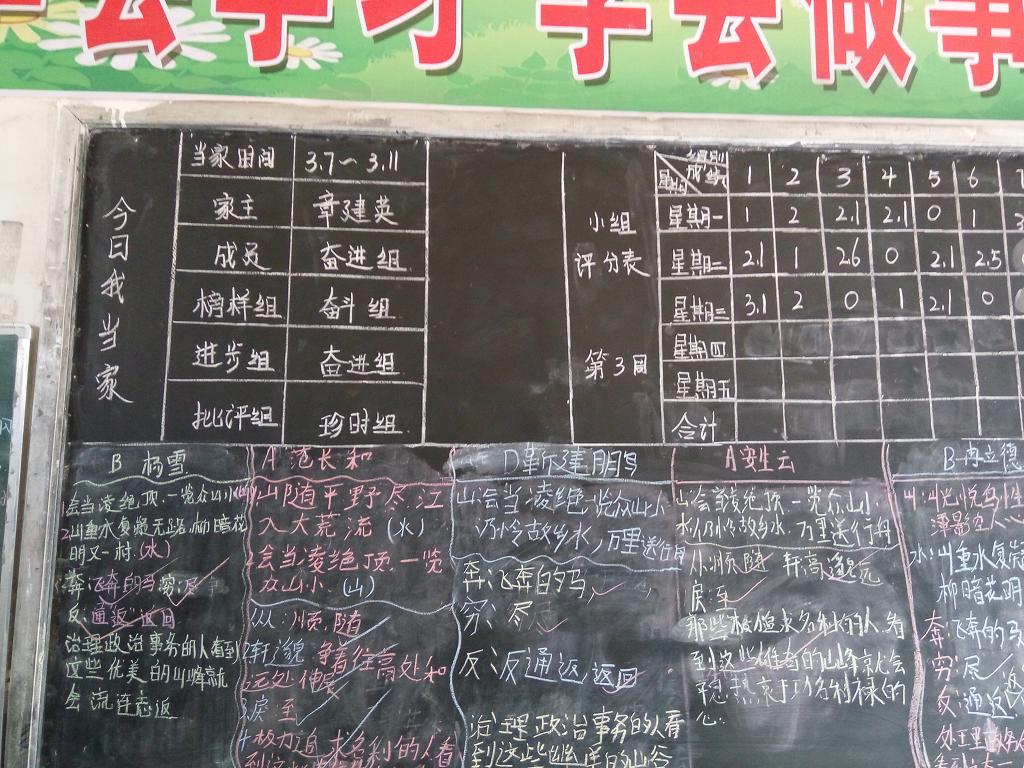 会学习 学会做事
今日我当家
当家时间 3.7～3.11
家主 章建英
成员 奋进组
榜样组 奋斗组
进步组 奋进组
批评组 珍时组
小组
评分表
第3周
组别
成绩
星期
1 2 3 4 5 6 7
星期一 1 2 2.1 2.1 0 1
星期二 2.1 1 2.6 0 2.1 2.5
星期三 3.1 2 0 1 2.1 0
星期四
星期五
合计
B 杨雪
会当凌绝顶,一览众山小(山)
2山重水复疑无路,柳暗花
明又一村.(水)
奔:飞奔的马 穷:尽
反:通返"返回
治理政治事务的人看到
这些优美的山峰就
会流连忘返
A 范长和
山随平野尽,江
入大荒流 (水)
会当凌绝顶一览
众山小 (山)
从:顺随
轩邈 争着往高处和
远处伸展
3戾:至
4极力追求名利的人看
D靳建鹏
山:会当凌绝一览众山小
仍怜故乡水,万里送行舟
奔:飞奔的马
穷:尽
反:反通返,返回
治理政治事务的人看
到这些
A安生云
山:会当凌绝顶 一览众山小
水:仍怜故乡水 万里送行舟
从:顺随 轩:高 邈:远
戾:至
那些极值求名利的人.看
到这些雄奇的山峰就会
平息热衷于名利禄的
心.
B冉立德
山:山光悦鸟性
潭影空人心
水:山重水复疑
柳暗花明
奔:飞奔的马
穷:尽
反:通返